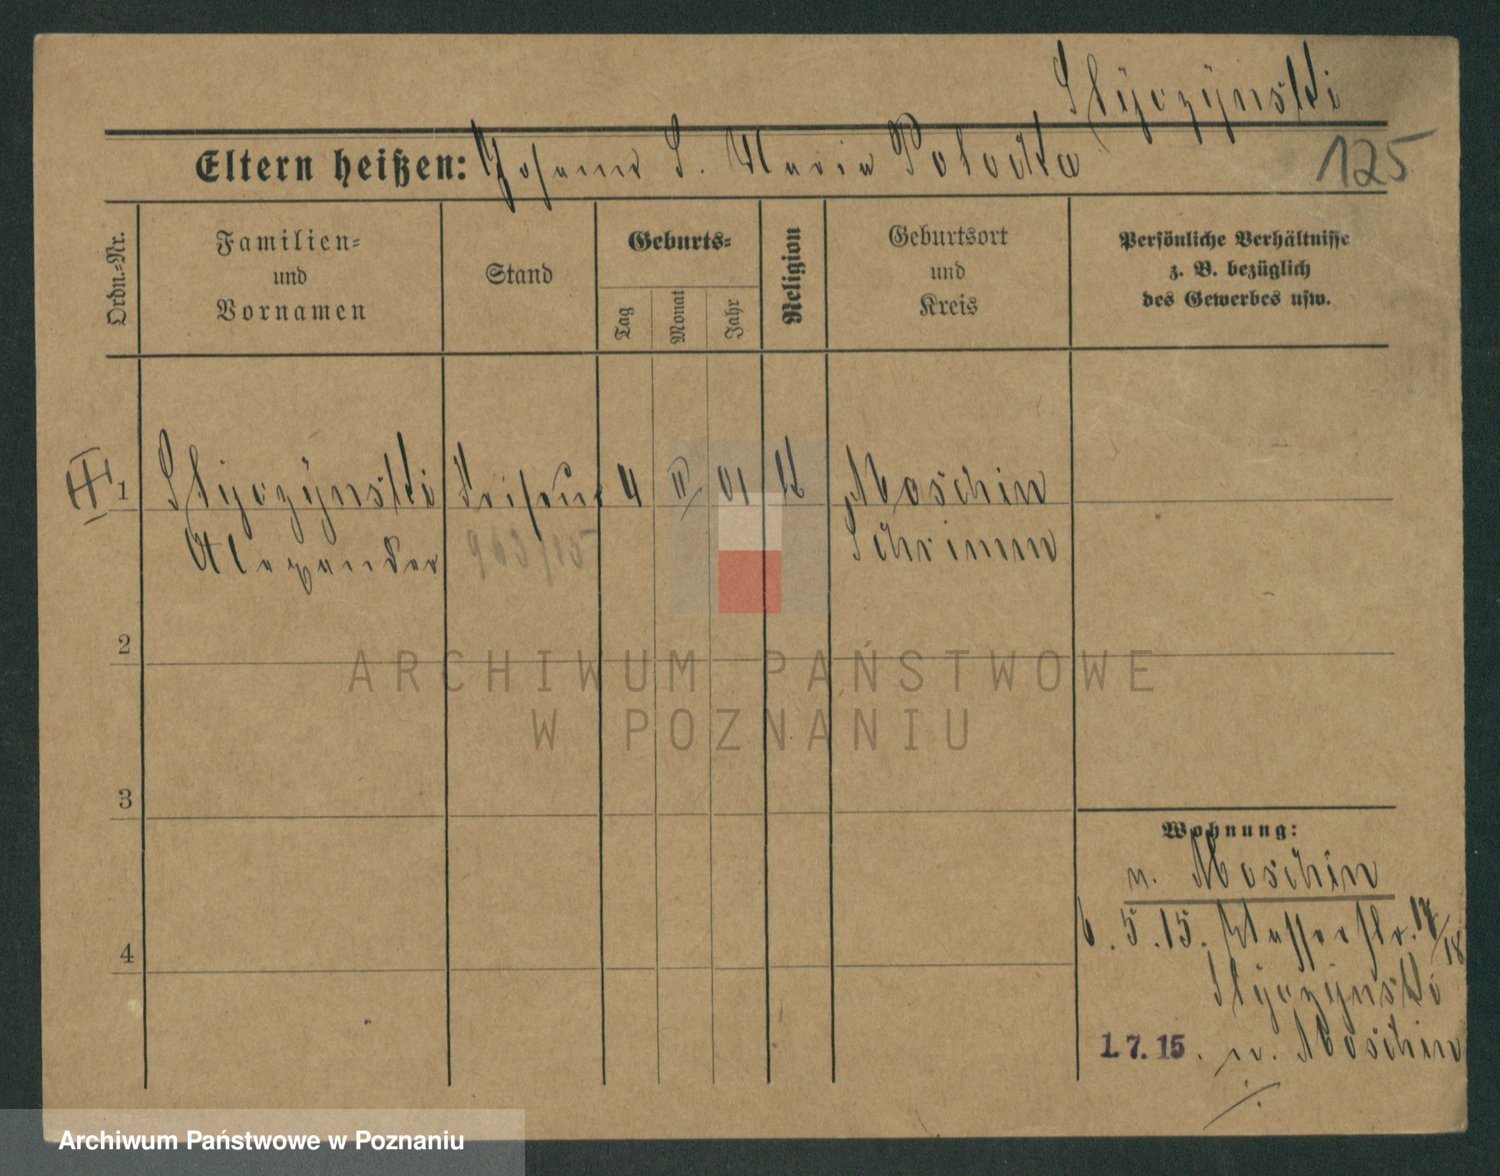 Styczÿnski
Eltern heißen: Johann S. Maria Potocka
125
Ordn.-Nr.
Familien-
und
Vornamen
Stand
Geburts-
Tag
Monat
Jahr
Religion
Geburtsort
und
Kreis
Persönliche Verhältnisse
z. B. bezüglich
des Gewerbes usw.
1 Styczÿnski Friseur 4 II 01 K Moschin
Alexander 963/15 Schrimm
2
ARCHIWUM PAŃSTWOWE
W POZNANIU
3
Wohnung:
n. Moschin
6.5.15. Wasserstr. 17/18
Styczÿnski
4
1.7.15. n. Moschin
Archiwum Państwowe w Poznaniu